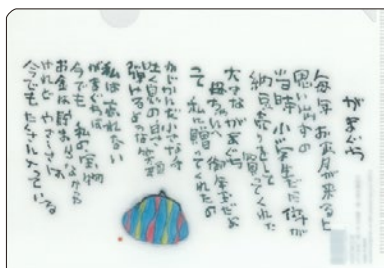 がまぐち
毎年 お正月が来ると
思い出すの
当時 小学生だった 倅が
納豆売りをして 買ってくれた
大きながまぐち
母ちゃんへ 御年玉だよ
って 私に贈ってくれたの
かじかんだ小さな手
吐く息の白さ
弾けるような笑顔
私は 忘れない
がまぐちは
今でも 私の宝物
お金は 貯まらなかった
けれど やさしさは
今でも たくさん入っている